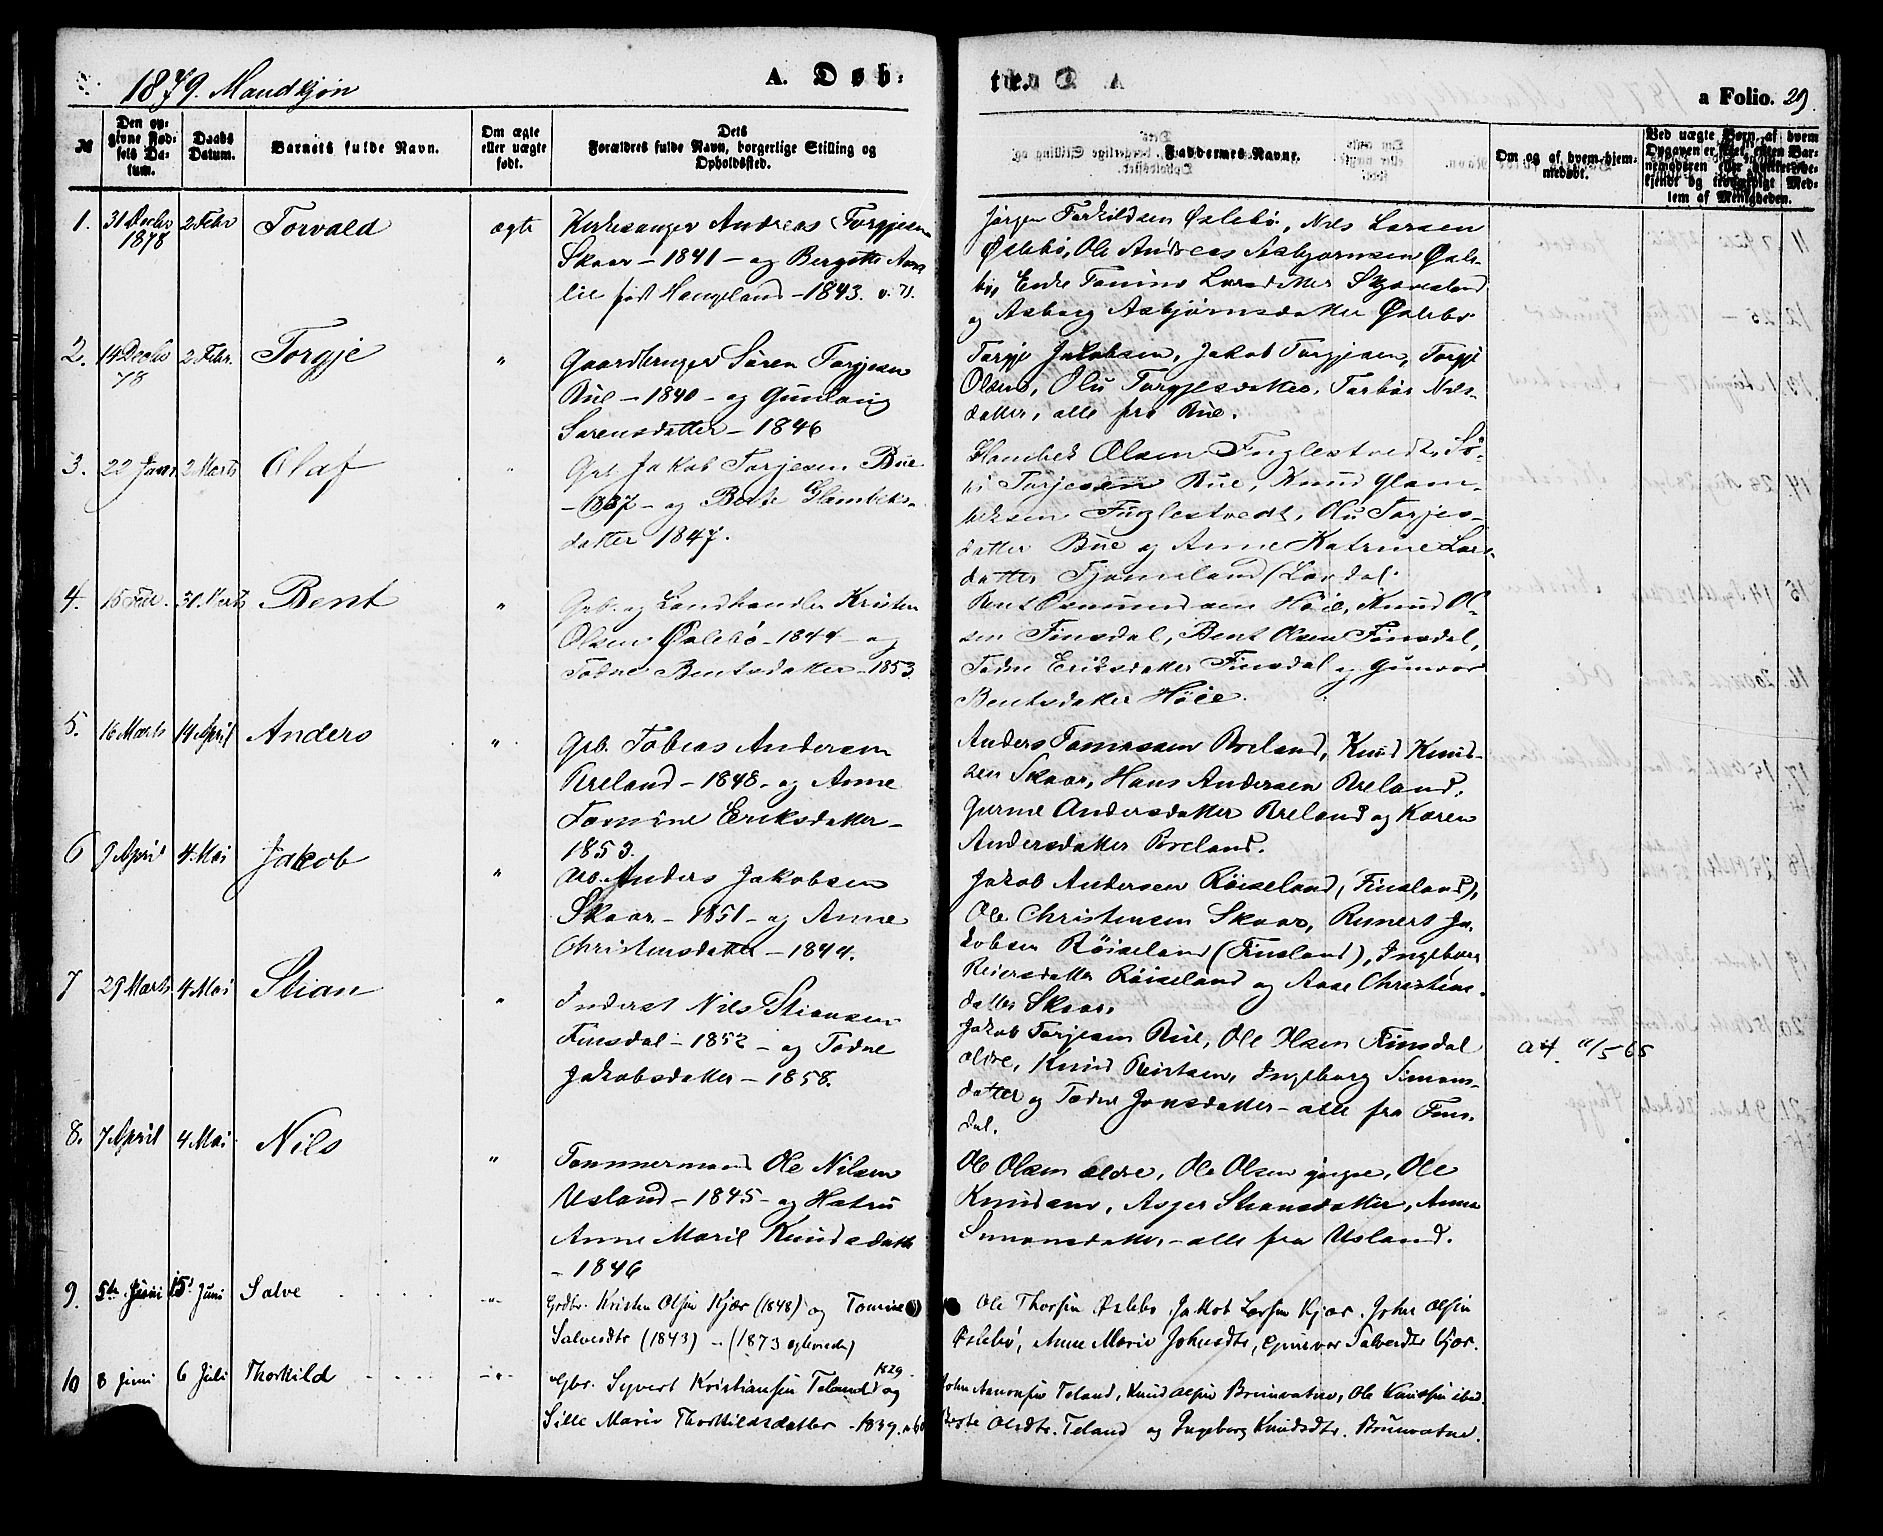 1879. Mandkjøn
A. Døb-
te.
a Folio. 29.
№
Den op-
givne Fød-
sels Da-
tum.
Daabs
Datum.
Barnets fulde Navn.
Om ægte
eller uægte
født.
Dets
Forældres fulde Navn, borgerlige Stilling og
Opholdssted.
Faddernes Navne.
Om og af hvem hjem-
medøbt.
1. 31 Decbr 1878 2 Febr Torvald ægte
Kirkesanger Andreas Torgjesen
Skaar - 1841 - og Bergitte Ama
lie født Haugeland - 1843.
Jørgen Torkildsen Øslebø, Nils Larsen
Øslebø, Ole Andreas Asbjørnsen Øsle-
bø,
og Asborg Asbjørnsdatter Øslebø
2. 14 Decbr 78 2 Febr. Torgje "
Gaardbruger Søren Torgjesen
Bue - 1840 - og Gunlaug
Sørensdatter - 1846
Torgje Jakobsen, Jakob Torgjesen, Torgje
Olsen, Olu Torgjesdatter, Torbør Nils-
datter, alle fra Bue.
3. 22 Janr 2 Marts Olaf "
Grb. Jakob Torjesen Bue
- 1837 - og Berte Glambeks-
datter 1847.
Glambek Olsen Fuglestvedt, Sø-
Torjesen Bue, Knud Glam-
beksen Fuglestvedt, Olu Torjes-
datter Bue og Anne Katrine Lars-
datter Tjomeland (Laudal
4. 15 Febr. 31. Marts Bent "
Grb. og Landhandler Kristen
Olsen Øslebø - 1844 - og
Todne Bentsdatter - 1853
Bent Osmundsen Høie, Knud Ol-
sen Finsdal, Bent Olsen Finsdal,
Todne Eriksdatter Finsdal og Gunvor
Bentsdatter Høie.
5. 16 Marts 14 April Anders "
Grb. Tobias Andersen
Breland - 1848 - og Anne
Tomine Eriksdatter -
1853.
Anders Tomassen Breland, Knud Knud-
sen Skaar, Hans Andersen Breland,
Gurine Andersdatter Breland og Karen
Andersdatter Breland.
6 9 April 4 Mai Jakob "
Arb. Anders Jakobsen
Skaar - 1851 - og Anne
Christensdatter - 1844.
Jakob Andersen Røiseland, (Finsland),
Ole Christensen Skaar, Reinert Ja-
kobsen Røiseland (Finsland), Ingeborg
Reiersdatter Røiseland og Aase Christens-
datter Skaar.
7 29 Marts 4 Mai Stian "
Inderst Nils Stiansen
Finsdal - 1852 - og Todne
Jakobsdatter - 1858.
Jakob Torjesen Bue, Ole Olsen Finsdal
ældre, Knud Reiersen, Ingeborg Simons-
datter og Todne Jonsdatter - alle fra Fins-
dal.
8. 7 April 4 Mai Nils "
Tømmermand Ole Nilsen
Usland - 1845 - og
Anne Maril Knudsdatter
- 1846
Ole Olsen ældre, Ole Olsen yngre, Ole
Knudsen, Asger Stiansdatter, Anna
Simonsdatter, - alle fra Usland.
9. 5te Juni 15de Juni Salve - " -
Grdbr. Kristen Olsen Kjær (1848) og Tomine
Salvesdtr (1843) - (1873
Ole Thorsen Øslebø Jakob Larsen Kjær. John Olsen
Øslebø, Anne Marie Johnsdtr, Gunvor Salvesdtr Kjær.
10 8 Juni 6 Juli Thorkild - " -
Gbr. Syvert Kristiansen Teland 1829. og
Sille Marie Thorkildsdatter - 1839.
John Aanonsen Teland, Knud Olsen Brunvatne, Ole Knudsen ibid.
Berte Olsdtr. Teland og Ingeborg Knudsdtr. Brunvatne.